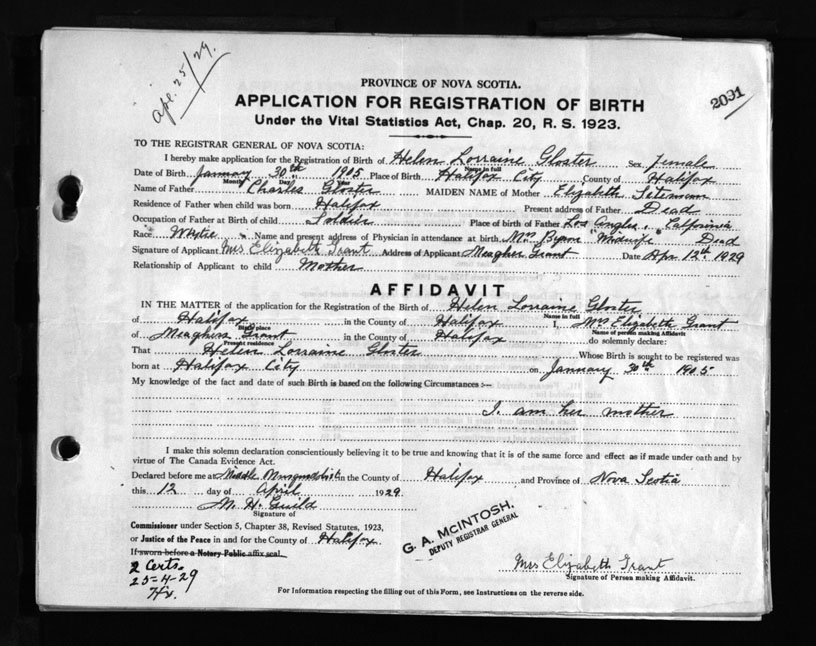 Apl. 25/29.
2031
PROVINCE OF NOVA SCOTIA.
APPLICATION FOR REGISTRATION OF BIRTH
Under the Vital Statistics Act, Chap. 20, R. S. 1923.
TO THE REGISTRAR GENERAL OF NOVA SCOTIA:
I hereby make application for the Registration of Birth of Helen Lorraine Gloster Sex female
Name in full
Date of Birth January 30th 1905 Place of Birth Halifax City County of Halifax
Month Day Year
Name of Father Charles Gloster MAIDEN NAME of Mother Elizabeth
Residence of Father when child was born Halifax Present address of Father Dead
Occupation of Father at Birth of child Soldier Place of birth of Father Los Angles, California
Race White Name and present address of Physician in attendance at birth Mrs Midwife Dead
Signature of Applicant Mrs Elizabeth Grant Address of Applicant Meagher Grant Date Apr 12th 1929
Relationship of Applicant to child Mother
AFFIDAVIT
IN THE MATTER of the application for the Registration of the Birth of Helen Lorraine Gloster
Name in full
of Halifax in the County of Halifax I, Mrs Elizabeth Grant
Birth place Name of person making Affidavit
of Meaghers Grant in the County of Halifax do solemnly declare:
Present residence
That Helen Lorraine Gloster Whose Birth is sought to be registered was
born at Halifax City on January 30th 1905
My knowledge of the fact and date of such Birth is based on the following Circumstances :—
I am her mother
I make this solemn declaration conscientiously believing it to be true and knowing that it is of the same force and effect as if made under oath and by
virtue of The Canada Evidence Act.
Declared before me at Middle Musquodoboit in the County of Halifax and Province of Nova Scotia
this 12 day of April 1929
M. H. Guild
Signature of
Commissioner under Section 5, Chapter 38, Revised Statutes, 1923,
or Justice of the Peace in and for the County of Halifax
If sworn before a Notary Public affix seal.
G. A. McINTOSH,
DEPUTY REGISTRAR GENERAL
2 Certs.
25-4-29
Hx.
Mrs Elizabeth Grant
Signature of Person making Affidavit.
For Information respecting the filling out of this Form, see Instructions on the reverse side.